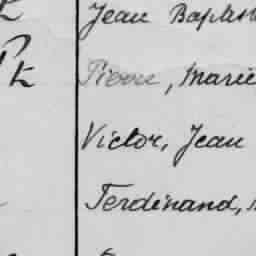 Jean Baptis
Pierre, Marie
Victor, Jean
Ferdinand,